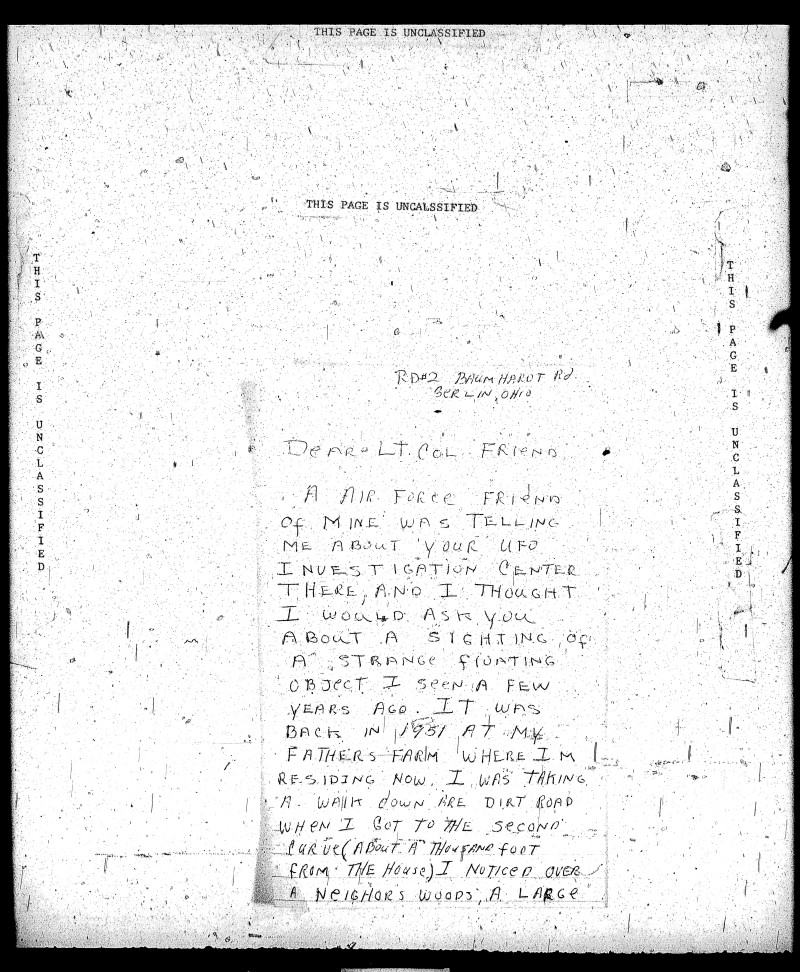 THIS PAGE IS UNCLASSIFIED
THIS PAGE IS UNCALSSIFIED
THIS PAGE IS UNCLASSIFIED
THIS PAGE IS UNCLASSIFIED
RD#2 BAUMHARDT Rd
BERLIN, OHIO
DEAR LT. COL. FRIEND
A AIR FORCE FRIEND
Of MINE WAS TELLING
ME ABOUT YOUR UFO
INVESTIGATION CENTER
THERE, AND I THOUGHT
I WOULD ASK YOU
ABOUT A SIGHTING Of
A STRANGE flOATING
OBJECT I SEEN A FEW
YEARS AGO. IT WAS
BACK IN 1951 AT MY
FATHERS FARM WHERE IM
RESIDING NOW. I WAS TAKING
A WAlK dOWN ARE DIRT ROAD
WHEN I GOT TO THE SECOND
CURVE (ABOUT A THOUSAND fOOT
FROM THE HOUSE) I NOTICED OVER
A NEIGHORS WOODS, A LARGE